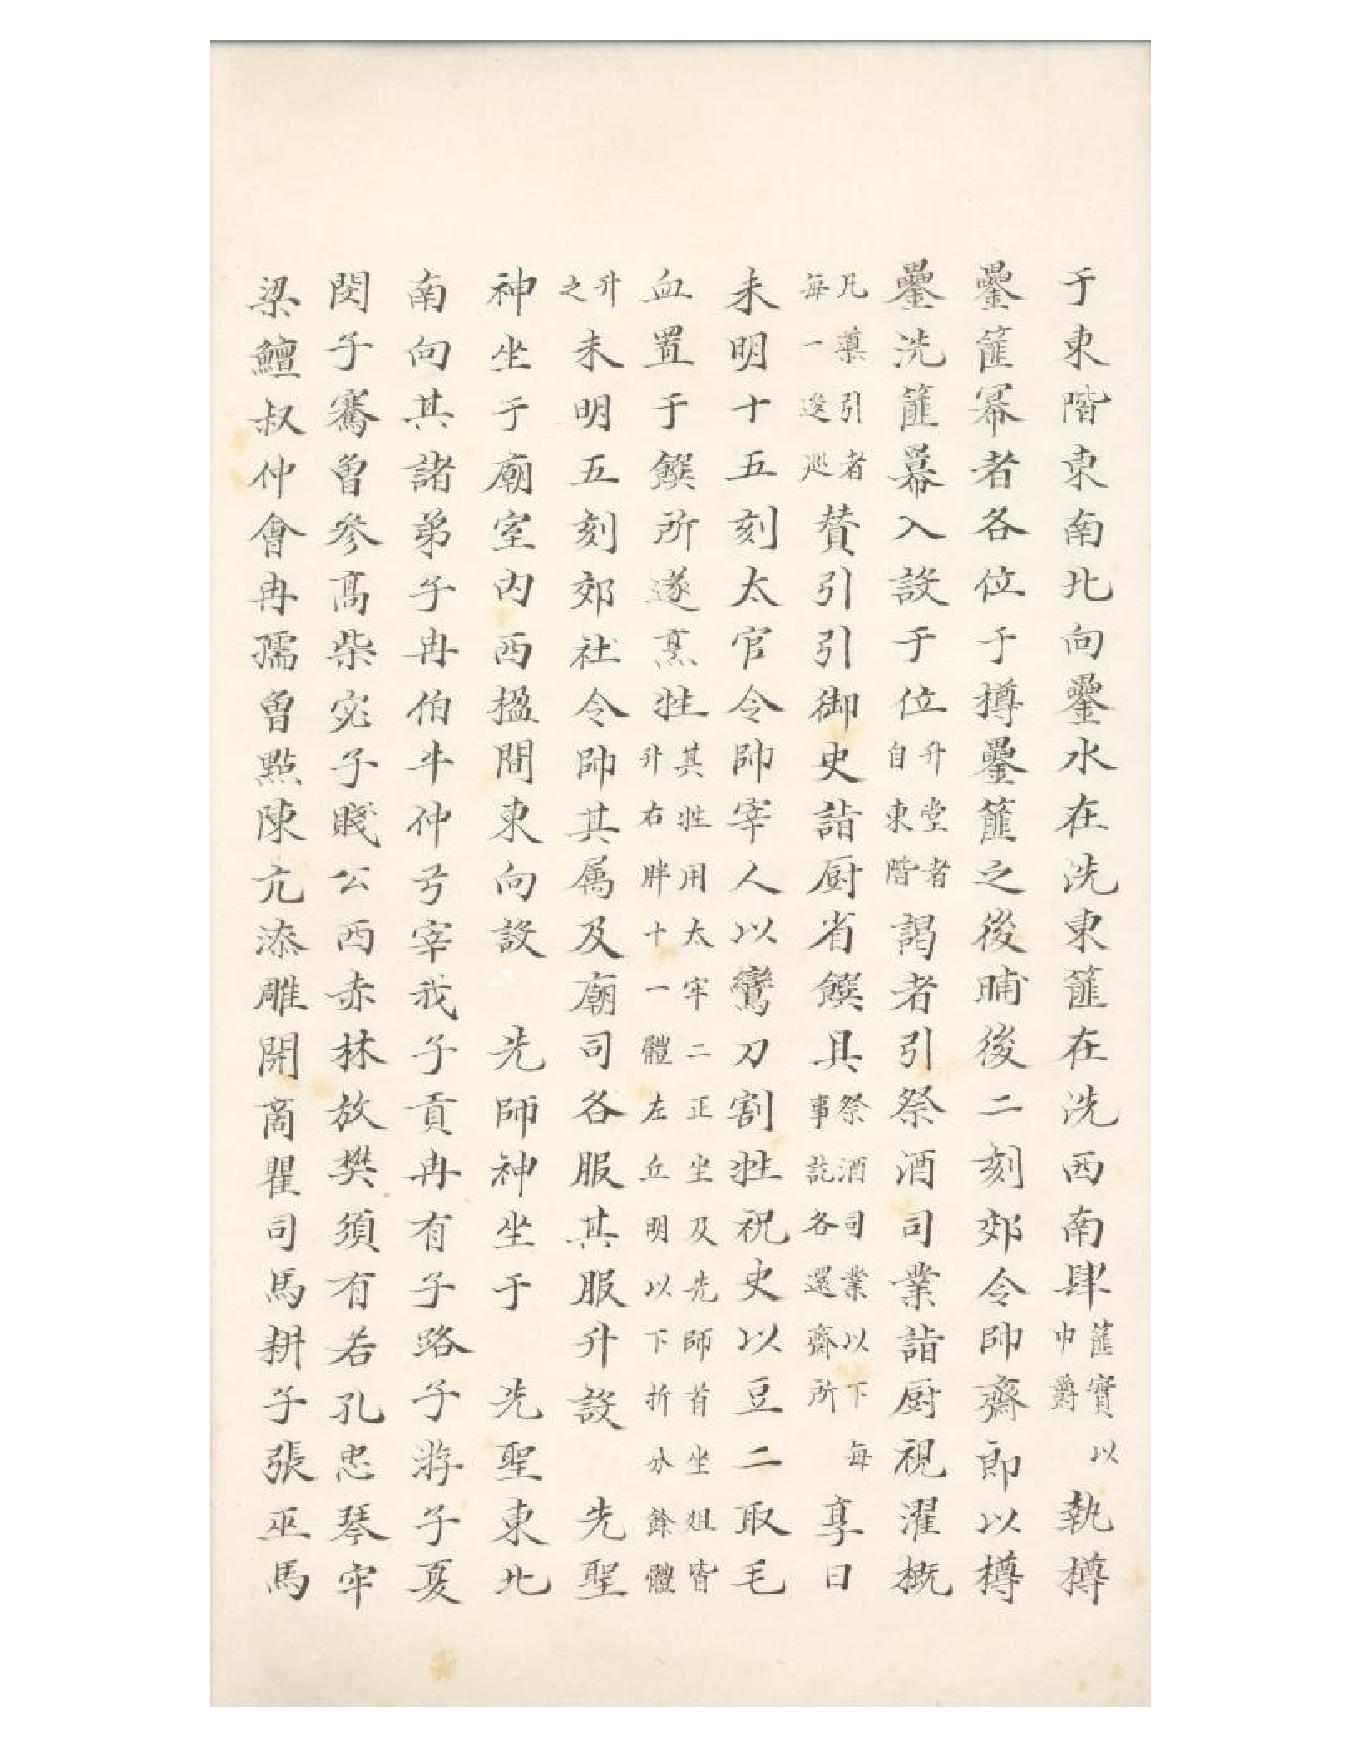 于東階東南北向罍水在洗東篚在洗西南肆篚實以巾爵執樽
罍篚冪者各位于樽罍篚之後晡後二刻郊令帥齋郎以樽
罍洗篚冪入設于位升堂者自東階謁者引祭酒司業詣厨視濯概
凡導引者每一逡巡賛引引御史詣厨省饌具祭酒司業以下每事訖各還齋所享日
未明十五刻太官令帥宰人以鸞刀割牲祝史以豆二取毛
血置于饌所遂烹牲其牲用太牢二正坐及先師首坐俎皆升右胖十一體左丘明以下折分餘體
升之未明五刻郊社令帥其属及廟司各服其服升設　先聖
神坐于廟室内西楹間東向設　先師神坐于　先聖東北
南向其諸弟子冉伯牛仲弓宰我子貢冉有子路子游子夏
閔子騫曾參高柴宓子賤公西赤林放樊須有若孔忠琴牢
梁鱣叔仲會冉孺曾點陳亢漆雕開商瞿司馬耕子張巫馬